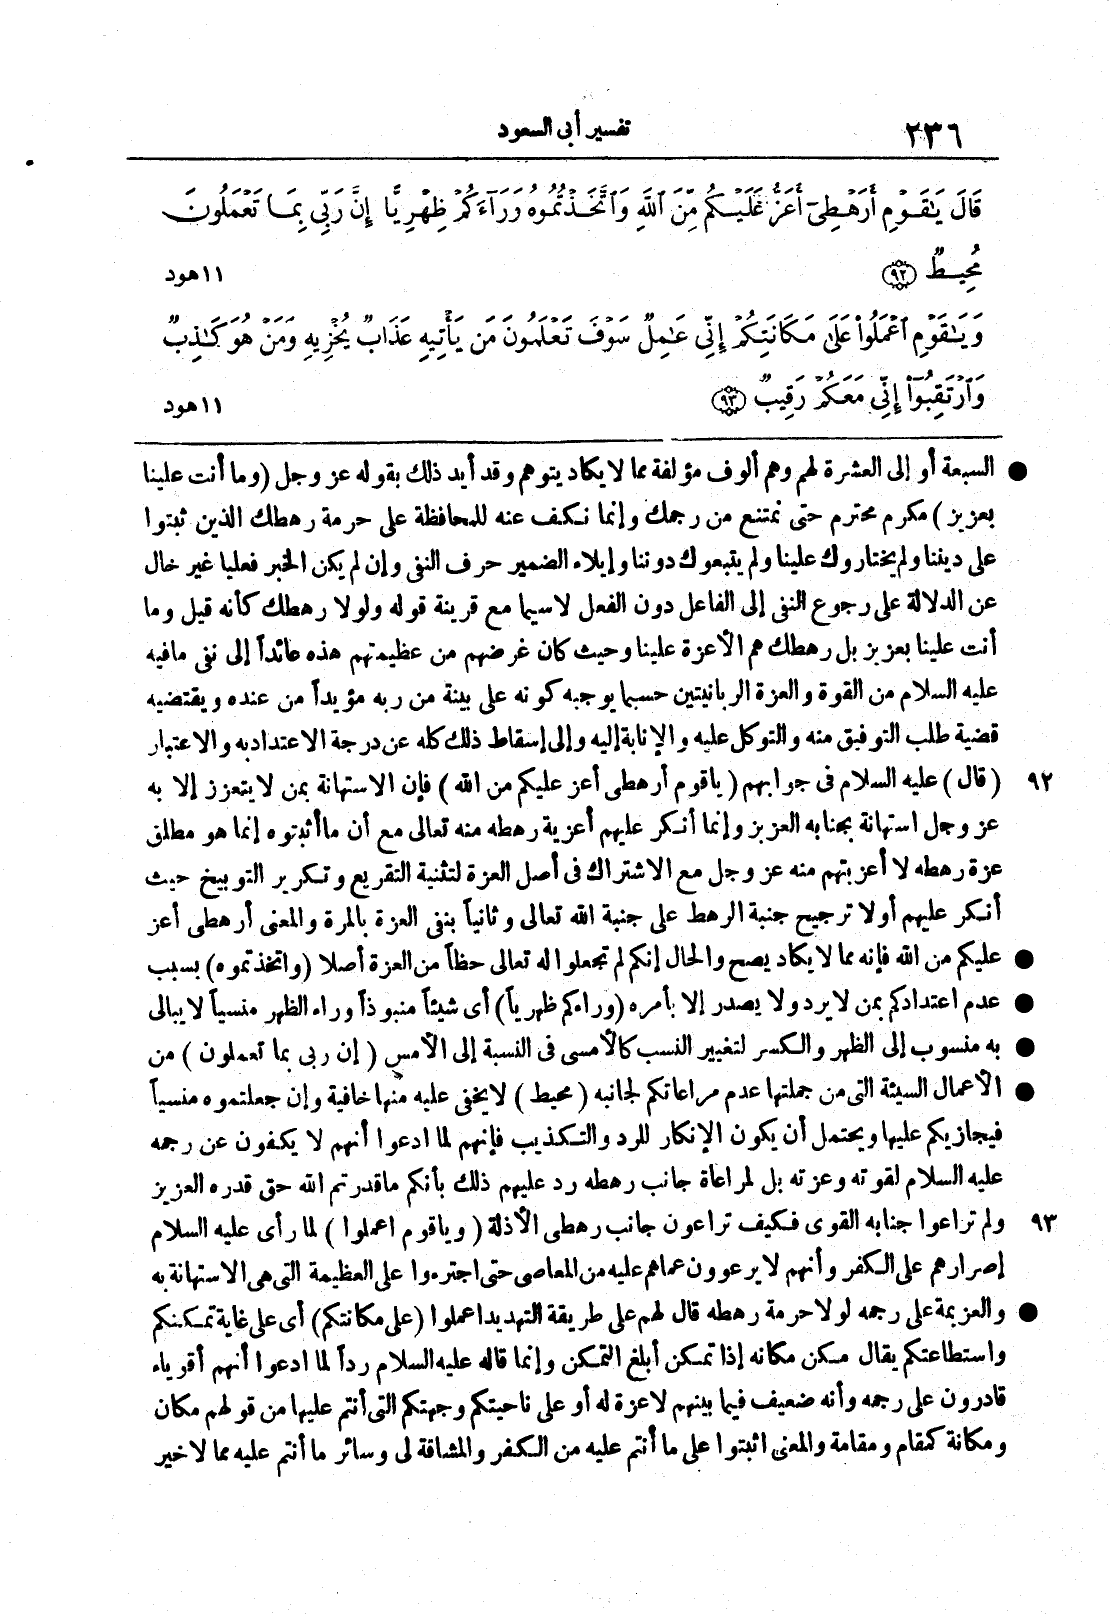 ٢٣٦ تفسير أبى السعود
قَالَ يَٰقَوْمِ أَرَهْطِىٓ أَعَزُّ عَلَيْكُم مِّنَ ٱللَّهِ وَٱتَّخَذْتُمُوهُ وَرَآءَكُمْ ظِهْرِيًّا إِنَّ رَبِّى بِمَا تَعْمَلُونَ
مُحِيطٌ ٩٢ ١١ هود
وَيَٰقَوْمِ ٱعْمَلُوا۟ عَلَىٰ مَكَانَتِكُمْ إِنِّى عَٰمِلٌ سَوْفَ تَعْلَمُونَ مَن يَأْتِيهِ عَذَابٌ يُخْزِيهِ وَمَنْ هُوَ كَٰذِبٌ
وَٱرْتَقِبُوٓا۟ إِنِّى مَعَكُمْ رَقِيبٌ ٩٣ ١١ هود
● السبعة أو إلى العشرة لهم وهم ألوف مؤلفة مما لا يكاد يتوهم وقد أيد ذلك بقوله عز وجل (وما أنت علينا
بعزيز) مكرم محترم حتى نمتنع من رجمك وإنما نكف عنه للمحافظة على حرمة رهطك الذين ثبتوا
على ديننا ولم يختاروك علينا ولم يتبعوك دوننا وإيلاء الضمير حرف النفى وإن لم يكن الخبر فعليا غير خال
عن الدلالة على رجوع النفى إلى الفاعل دون الفعل لاسيما مع قرينة قوله ولولا رهطك كأنه قيل وما
أنت علينا بعزيز بل رهطك هم الأعزة علينا وحيث كان غرضهم من عظيمتهم هذه عائداً إلى نفى مافيه
عليه السلام من القوة والعزة الربانيتين حسبما يوجبه كونه على بينة من ربه مؤيداً من عنده ويقتضيه
قضية طلب التوفيق منه والتوكل عليه والإنابة إليه وإلى إسقاط ذلك كله عن درجة الاعتداد به والاعتبار
٩٢ (قال) عليه السلام فى جوابهم (ياقوم أرهطى أعز عليكم من الله) فإن الاستهانة بمن لا يتعزز إلا به
عز وجل استهانة بجنابه العزيز وإنما أنكر عليهم أعزية رهطه منه تعالى مع أن ما أثبتوه إنما هو مطلق
عزة رهطه لا أعزيتهم منه عز وجل مع الاشتراك فى أصل العزة لتثنية التقريع وتكرير التوبيخ حيث
أنكر عليهم أولا ترجيح جنبة الرهط على جنبة الله تعالى وثانياً بنفى العزة بالمرة والمعنى أرهطى أعز
● عليكم من الله فإنه مما لا يكاد يصح والحال إنكم لم تجعلوا له تعالى حظاً من العزة أصلا (واتخذتموه) بسبب
● عدم اعتدادكم بمن لا يرد ولا يصدر إلا بأمره (وراءكم ظهرياً) أى شيئاً منبوذاً وراء الظهر منسياً لا يبالى
● به منسوب إلى الظهر والكسر لتغيير النسب كالأمسى فى النسبة إلى الأمس (إن ربى بما تعملون) من
● الأعمال السيئة التى من جملتها عدم مراعاتكم لجانبه (محيط) لا يخفى عليه منها خافية وإن جعلتموه منسياً
فيجازيكم عليها ويحتمل أن يكون الإنكار للرد والتكذيب فإنهم لما ادعوا أنهم لا يكفون عن رجمه
عليه السلام لقوته وعزته بل لمراعاة جانب رهطه رد عليهم ذلك بأنكم ماقدرتم الله حق قدره العزيز
٩٣ ولم تراعوا جنابه القوى فكيف تراعون جانب رهطى الأذلة (وياقوم اعملوا) لما رأى عليه السلام
إصرارهم على الكفر وأنهم لا يرعوون عماهم عليه من المعاصى حتى اجترءوا على العظيمة التى هى الاستهانة به
● والعزيمة على رجمه لولا حرمة رهطه قال لهم على طريقة التهديد اعملوا (على مكانتكم) أى على غاية تمكنكم
واستطاعتكم يقال مكن مكانه إذا تمكن أبلغ التمكن وإنما قاله عليه السلام رداً لما ادعوا أنهم أقوياء
قادرون على رجمه وأنه ضعيف فيما بينهم لا عزة له أو على ناحيتكم وجهتكم التى أنتم عليها من قولهم مكان
ومكانة كمقام ومقامة والمعنى اثبتوا على ما أنتم عليه من الكفر والمشاقة لى وسائر ما أنتم عليه مما لا خير